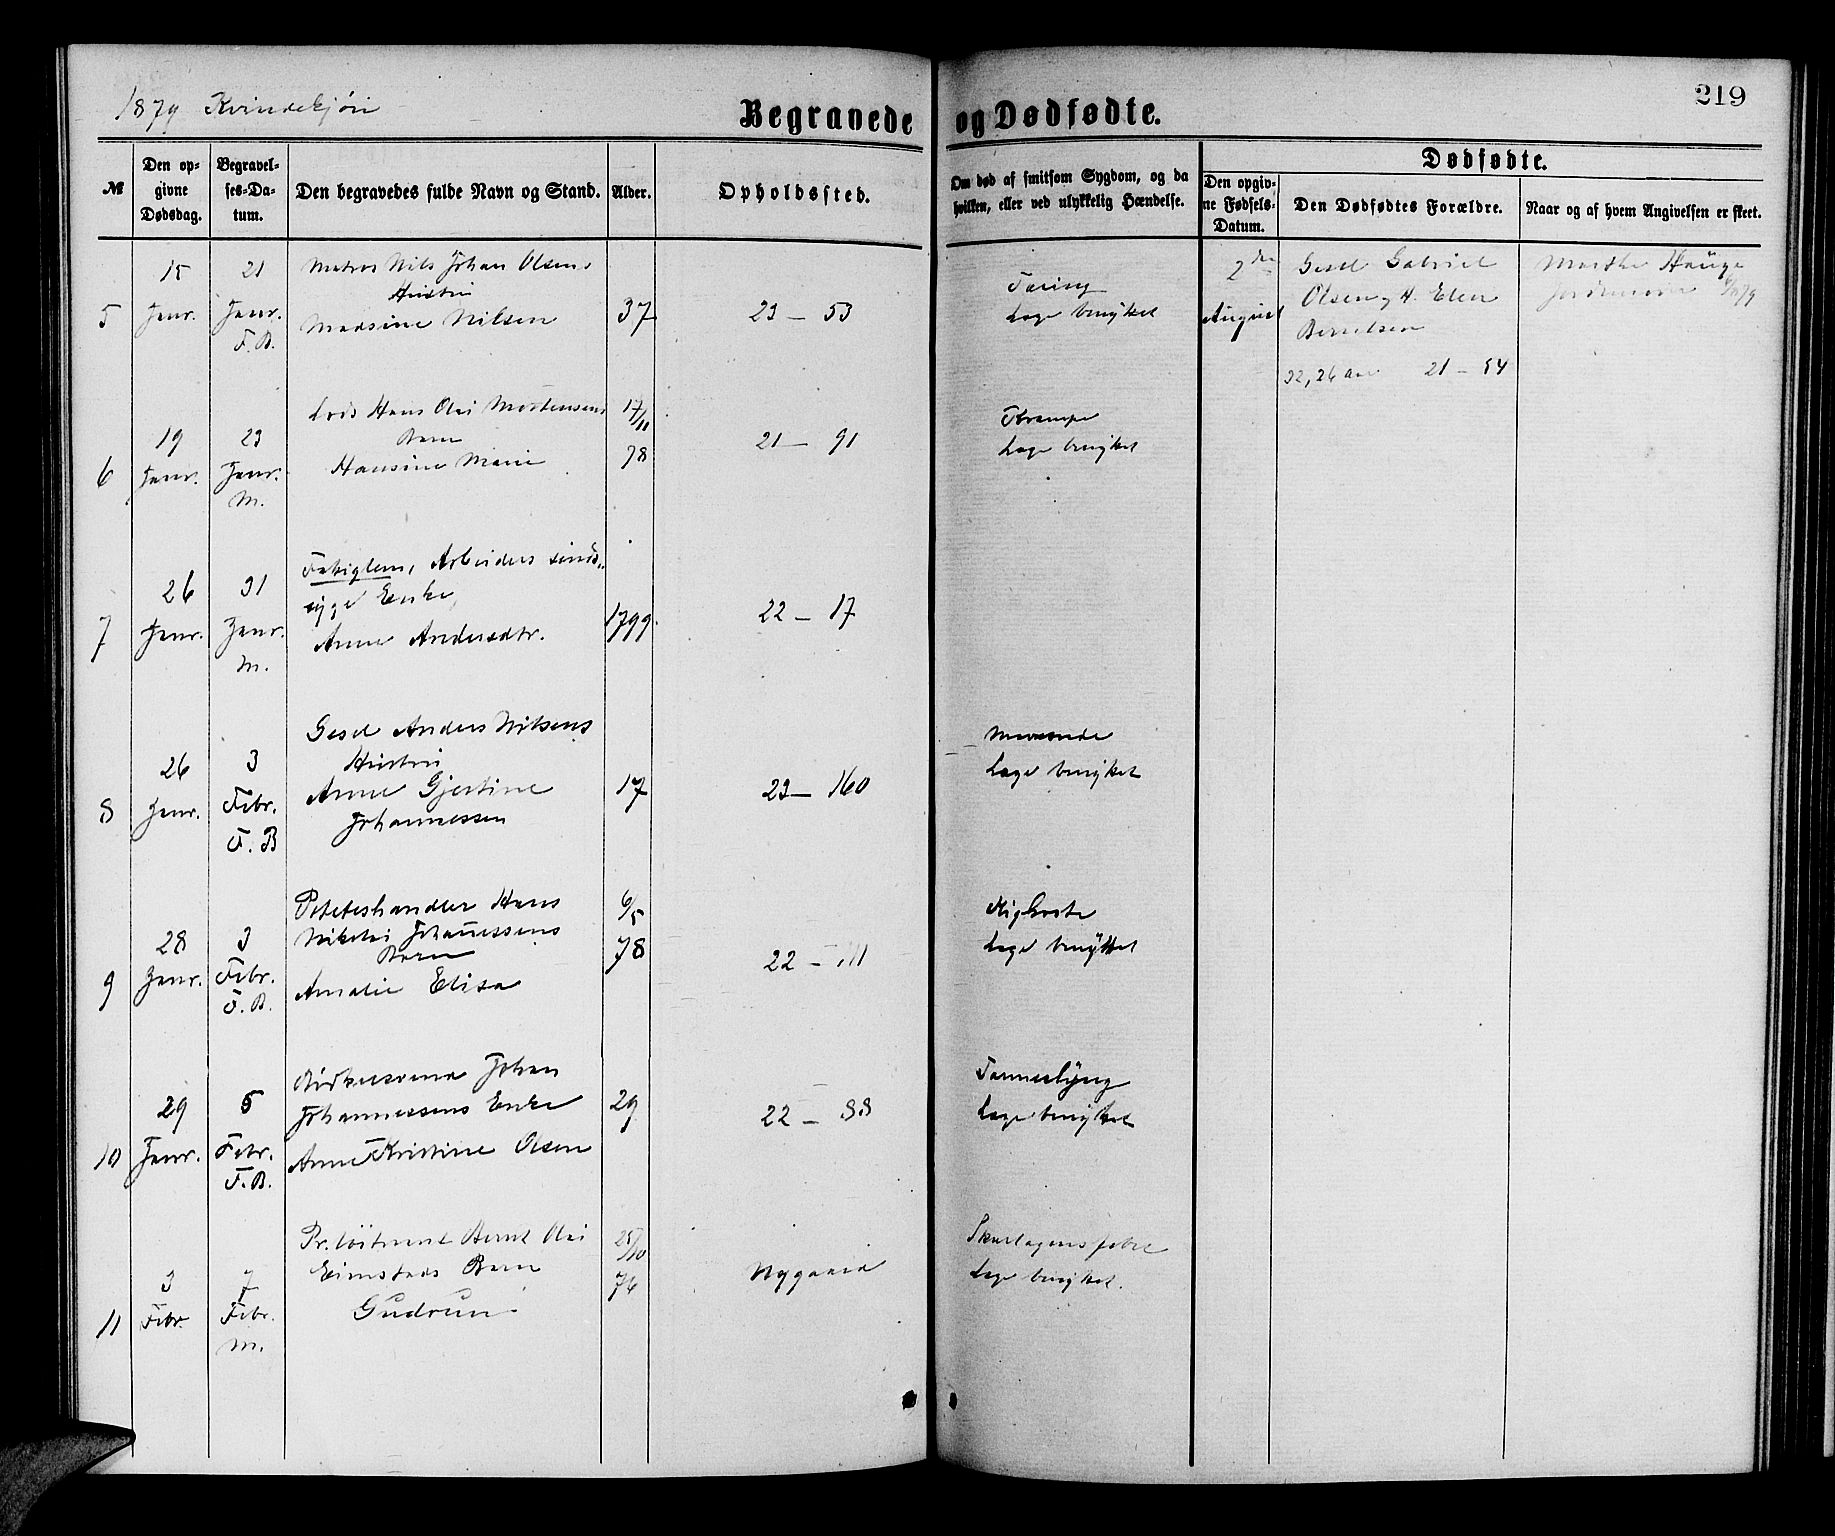 1879 Kvindekjøn
Begravede og Dødfødte.
219
№
Den opgivne Dødsdag.
Begravelses-Datum.
Den begravedes fulde Navn og Stand.
Alder.
Opholdssted.
Om død af smitsom Sygdom, og da hvilken, eller ved ulykkelig Hændelse.
Dødfødte.
Den opgivne Fødsels-Datum.
Den Dødfødtes Forældre.
Naar og af hvem Angivelsen er skeet.
5
15 Janr.
21 Janr. F. B.
Matros Nils Johan Olsens
Hustru
Madsine Nilsen
37
23 — 53
Tæring
Læge benyttet
2den August
Gesel Gabriel
Olsen og H. Elen
Berntsen
32, 26 Aar 21 — 54
Marthe Hauge
Jordmoder
6
19 Janr.
23 Janr. M.
Lods Hans Olai Mortensens
Barn
Hansine Marie
17/11 78
21 — 91
Krampe
Læge benyttet
7
26 Janr.
31 Janr. M.
Fattiglem, Arbeiders sinds-
syge Enke,
Anne Andersdtr.
1799.
22 — 17
8
26 Janr.
3 Febr. F. B
Gesel Anders Nilsens
Hustru
Anne Gjertine
Johannessen
17
23 — 160
Læge benyttet
9
28 Janr.
3 Febr. F. B.
Poteteshandler Hans
Nikolai Johannessens
Barn
Amalie Elisa
6/5 78
22 — 111
Kighoste
Læge benyttet
10
29 Janr.
5 Febr. F. B.
Johan
Johannessens Enke
Anne Kristine Olsen
29
22 — 88
Læge benyttet
11
3 Febr.
7 Febr. M.
Pr. løitnant Bernt Olai
Eimstads Barn
Gudrun.
25/10 76
Nygaard
Skarlagensfeber
Læge benyttet.